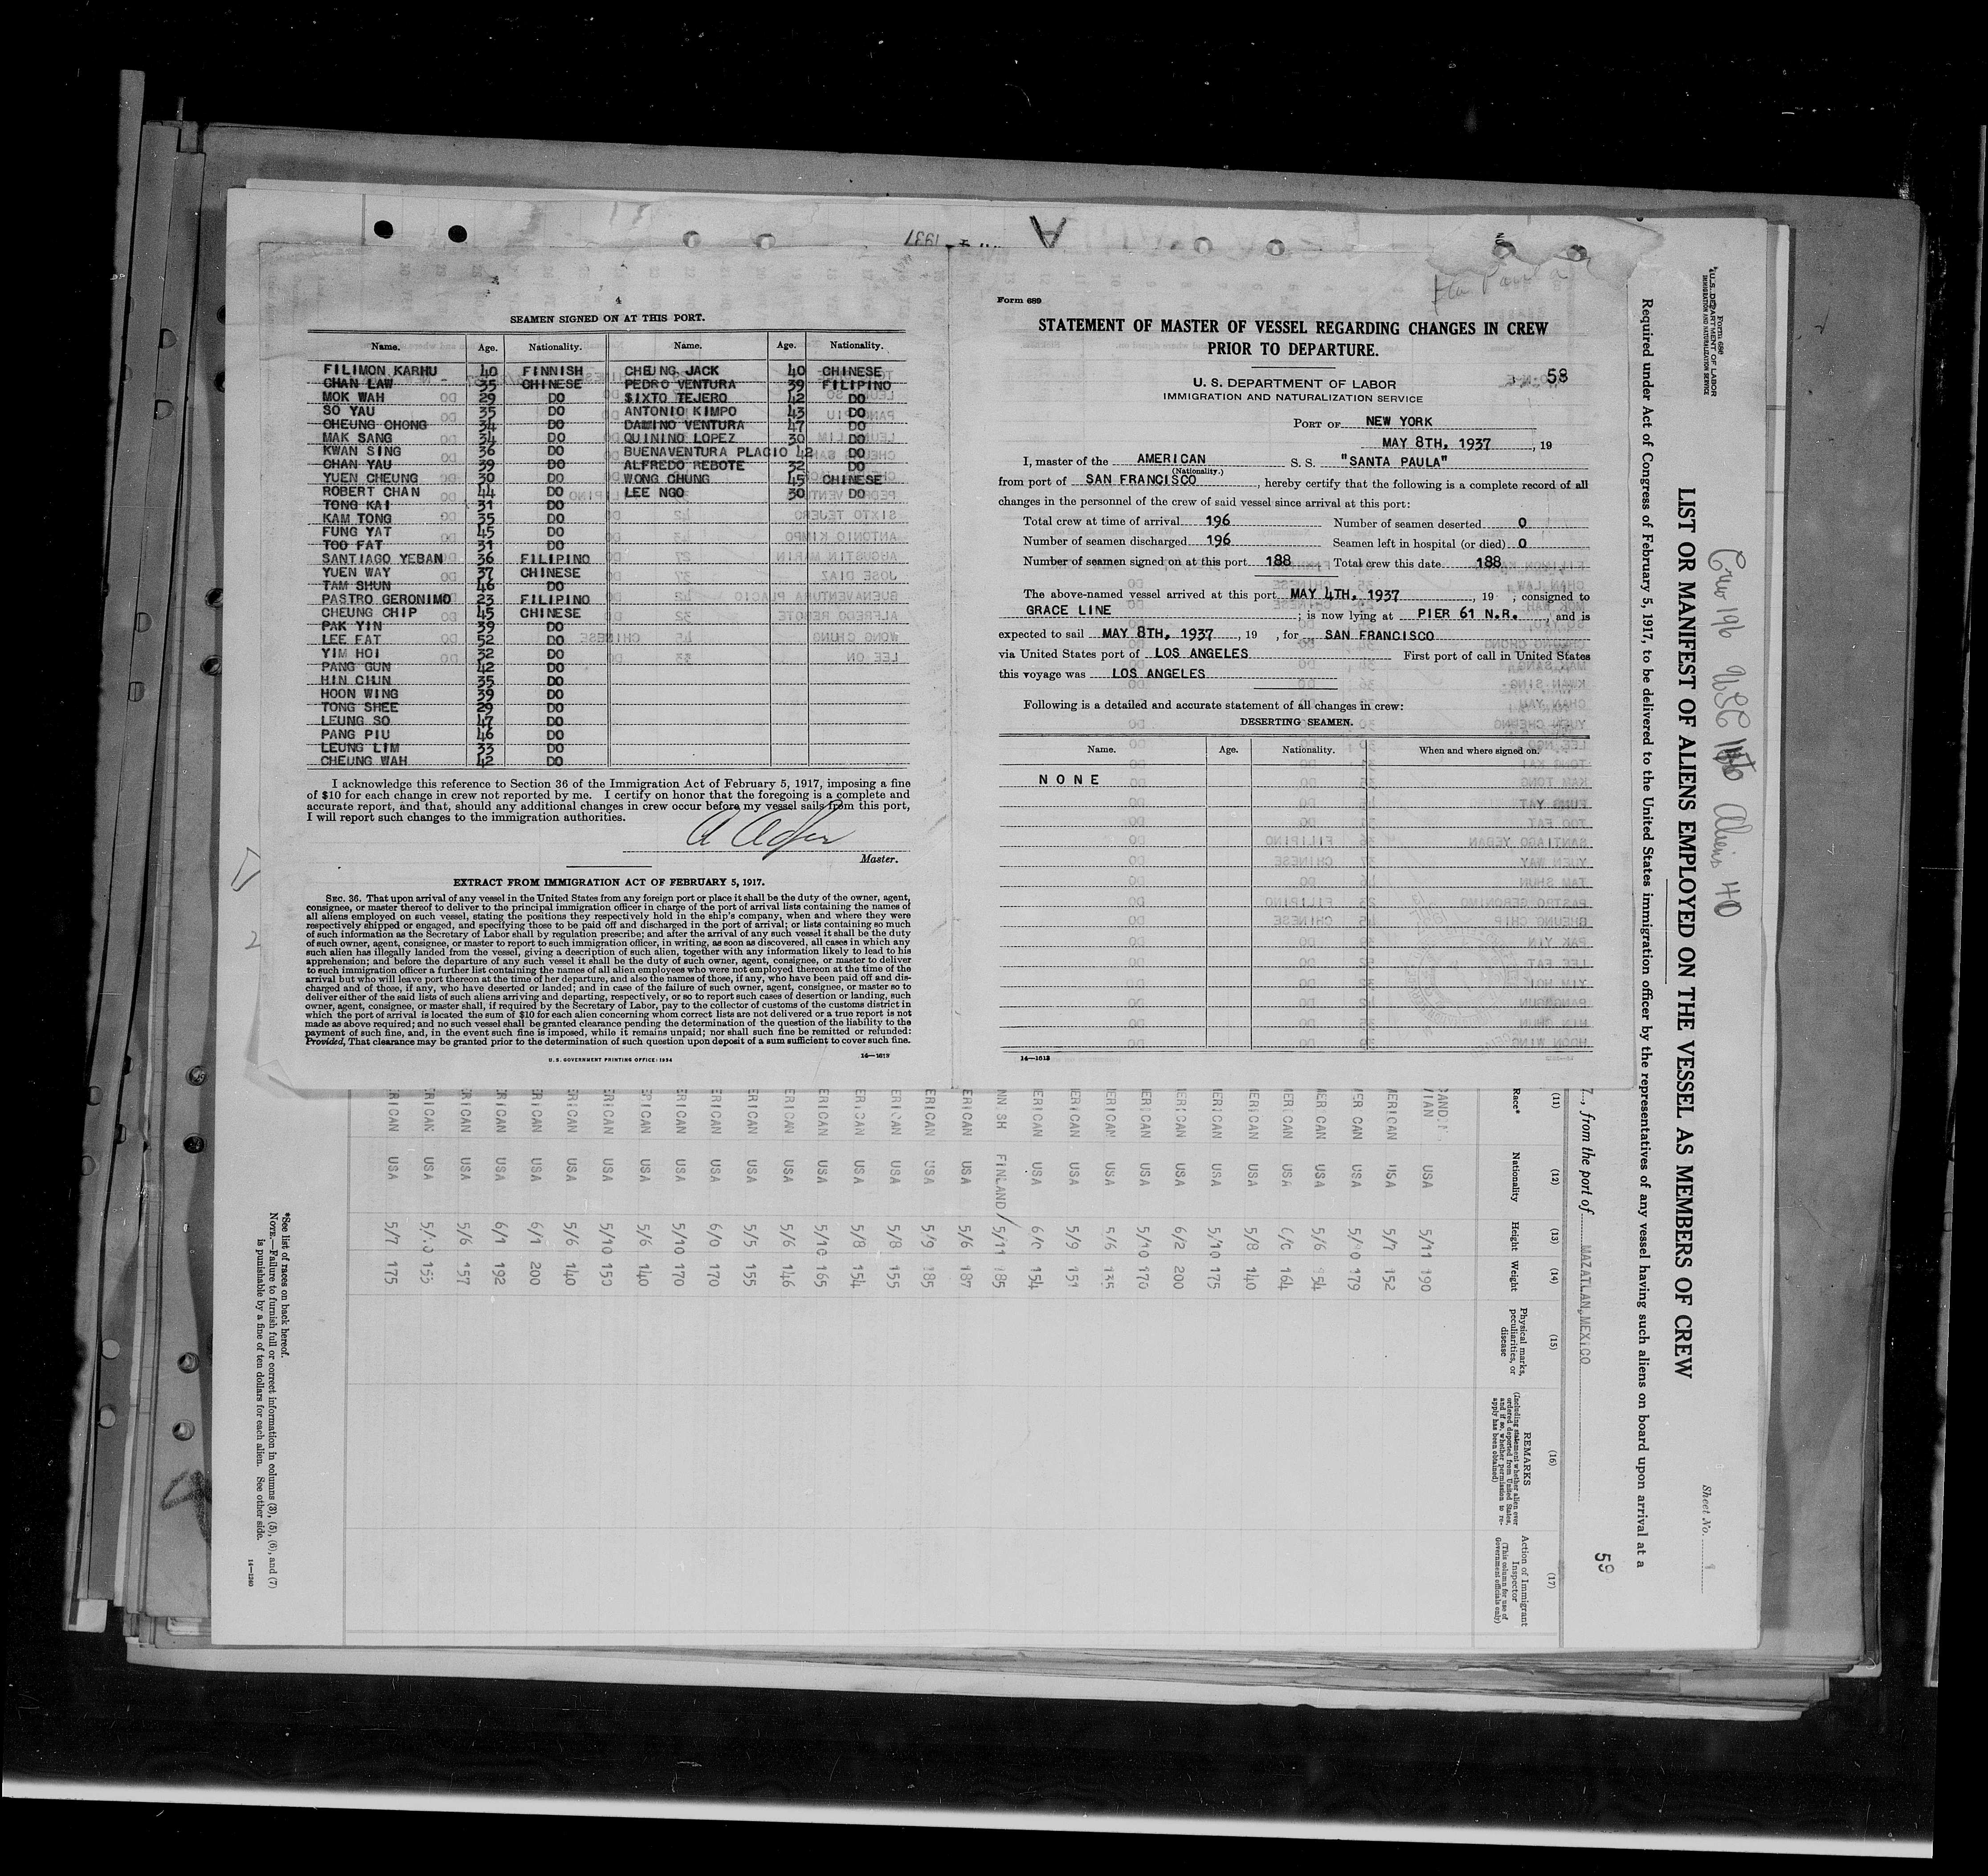 4
SEAMEN SIGNED ON AT THIS PORT.
Name. Age. Nationality. Name. Age. Nationality.
FILIMON KARHU 40 FINNISH CHEUNG JACK 40 CHINESE
CHAN LAW 35 CHINESE PEDRO VENTURA 39 FILIPINO
MOK WAH 29 DO SIXTO TEJERO 42 DO
SO YAU 35 DO ANTONIO KIMPO 43 DO
CHEUNG CHONG 34 DO DAMINO VENTURA 47 DO
MAK SANG 34 DO QUININO LOPEZ 30 DO
KWAN SING 36 DO BUENAVENTURA PLACIO 42 DO
CHAN YAU 39 DO ALFREDO REBOTE 32 DO
YUEN CHEUNG 30 DO WONG CHUNG 45 CHINESE
ROBERT CHAN 44 DO LEE NGO 30 DO
TONG KAI 31 DO
KAM TONG 35 DO
FUNG YAT 45 DO
TOO FAT 31 DO
SANTIAGO YEBAN 36 FILIPINO
YUEN WAY 37 CHINESE
TAM SHUN 46 DO
PASTRO GERONIMO 23 FILIPINO
CHEUNG CHIP 45 CHINESE
PAK YIN 39 DO
LEE FAT 52 DO
YIM HOI 32 DO
PANG GUN 42 DO
HIN CHUN 35 DO
HOON WING 39 DO
TONG SHEE 29 DO
LEUNG SO 47 DO
PANG PIU 46 DO
LEUNG LIM 33 DO
CHEUNG WAH 42 DO
I acknowledge this reference to Section 36 of the Immigration Act of February 5, 1917, imposing a fine
of $10 for each change in crew not reported by me. I certify on honor that the foregoing is a complete and
accurate report, and that, should any additional changes in crew occur before my vessel sails from this port,
I will report such changes to the immigration authorities.
Master.
EXTRACT FROM IMMIGRATION ACT OF FEBRUARY 5, 1917.
SEC. 36. That upon arrival of any vessel in the United States from any foreign port or place it shall be the duty of the owner, agent,
consignee, or master thereof to deliver to the principal immigration officer in charge of the port of arrival lists containing the names of
all aliens employed on such vessel, stating the positions they respectively hold in the ship's company, when and where they were
respectively shipped or engaged, and specifying those to be paid off and discharged in the port of arrival; or lists containing so much
of such information as the Secretary of Labor shall by regulation prescribe; and after the arrival of any such vessel it shall be the duty
of such owner, agent, consignee, or master to report to such immigration officer, in writing, as soon as discovered, all cases in which any
such alien has illegally landed from the vessel, giving a description of such alien, together with any information likely to lead to his
apprehension; and before the departure of any such vessel it shall be the duty of such owner, agent, consignee, or master to deliver
to such immigration officer a further list containing the names of all alien employees who were not employed thereon at the time of the
arrival but who will leave port thereon at the time of her departure, and also the names of those, if any, who have been paid off and dis-
charged and of those, if any, who have deserted or landed; and in case of the failure of such owner, agent, consignee, or master so to
deliver either of the said lists of such aliens arriving and departing, respectively, or so to report such cases of desertion or landing, such
owner, agent, consignee, or master shall, if required by the Secretary of Labor, pay to the collector of customs of the customs district in
which the port of arrival is located the sum of $10 for each alien concerning whom correct lists are not delivered or a true report is not
made as above required; and no such vessel shall be granted clearance pending the determination of the question of the liability to the
payment of such fine, and, in the event such fine is imposed, while it remains unpaid; nor shall such fine be remitted or refunded:
Provided, That clearance may be granted prior to the determination of such question upon deposit of a sum sufficient to cover such fine.
U.S. GOVERNMENT PRINTING OFFICE: 1934 14—1613
Form 689
STATEMENT OF MASTER OF VESSEL REGARDING CHANGES IN CREW
PRIOR TO DEPARTURE.
58
U. S. DEPARTMENT OF LABOR
IMMIGRATION AND NATURALIZATION SERVICE
PORT OF NEW YORK
MAY 8TH, 1937, 19
I, master of the AMERICAN S. S. "SANTA PAULA"
(Nationality.)
from port of SAN FRANCISCO, hereby certify that the following is a complete record of all
changes in the personnel of the crew of said vessel since arrival at this port:
Total crew at time of arrival 196 Number of seamen deserted 0
Number of seamen discharged 196 Seamen left in hospital (or died) 0
Number of seamen signed on at this port 188 Total crew this date 188
The above-named vessel arrived at this port MAY 4TH, 1937, 19 , consigned to
GRACE LINE ; is now lying at PIER 61 N.R. , and is
expected to sail MAY 8TH, 1937, 19 , for SAN FRANCISCO
via United States port of LOS ANGELES First port of call in United States
this voyage was LOS ANGELES
Following is a detailed and accurate statement of all changes in crew:
DESERTING SEAMEN.
Name. Age. Nationality. When and where signed on.
NONE
14—1613
Form 680
U.S. DEPARTMENT OF LABOR
IMMIGRATION AND NATURALIZATION SERVICE
Crew 196 USC 156 Aliens 40
Sheet No. 1
LIST OR MANIFEST OF ALIENS EMPLOYED ON THE VESSEL AS MEMBERS OF CREW
Required under Act of Congress of February 5, 1917, to be delivered to the United States immigration officer by the representatives of any vessel having such aliens on board upon arrival at a
59
7, from the port of MAZATLAN, MEXICO
(11) (12) (13) (14) (15) (16) (17)
Race* Nationality Height Weight Physical marks, peculiarities, or disease REMARKS (Including statement whether alien ever ordered deported from United States, and if so, whether permission to re-apply has been obtained) Action of Immigrant Inspector (This column for use of Government officials only)
USA 5/11 190
ERICAN USA 5/7 152
USA 5/10 179
USA 5/6 154
USA 6/0 164
ERICAN USA 5/8 140
ERICAN USA 5/10 175
ERICAN USA 6/2 200
ERICAN USA 5/10 170
ERICAN USA 5/6 135
ERICAN USA 5/9 151
ERICAN USA 6/0 154
FINLAND 5/11 185
ERICAN USA 5/6 187
ERICAN USA 5/9 185
ERICAN USA 5/8 155
ERICAN USA 5/8 154
ERICAN USA 5/10 165
ERICAN USA 5/6 146
ERICAN USA 5/5 155
ERICAN USA 6/0 170
ERICAN USA 5/10 170
ERICAN USA 5/6 140
ERICAN USA 5/10 150
ERICAN USA 5/6 140
ERICAN USA 6/1 200
ERICAN USA 6/1 192
ERICAN USA 5/6 157
ERICAN USA 155
ERICAN USA 5/7 175
*See list of races on back hereof.
NOTE.—Failure to furnish full or correct information in columns (3), (5), (6), and (7)
is punishable by a fine of ten dollars for each alien. See other side.
14—1240